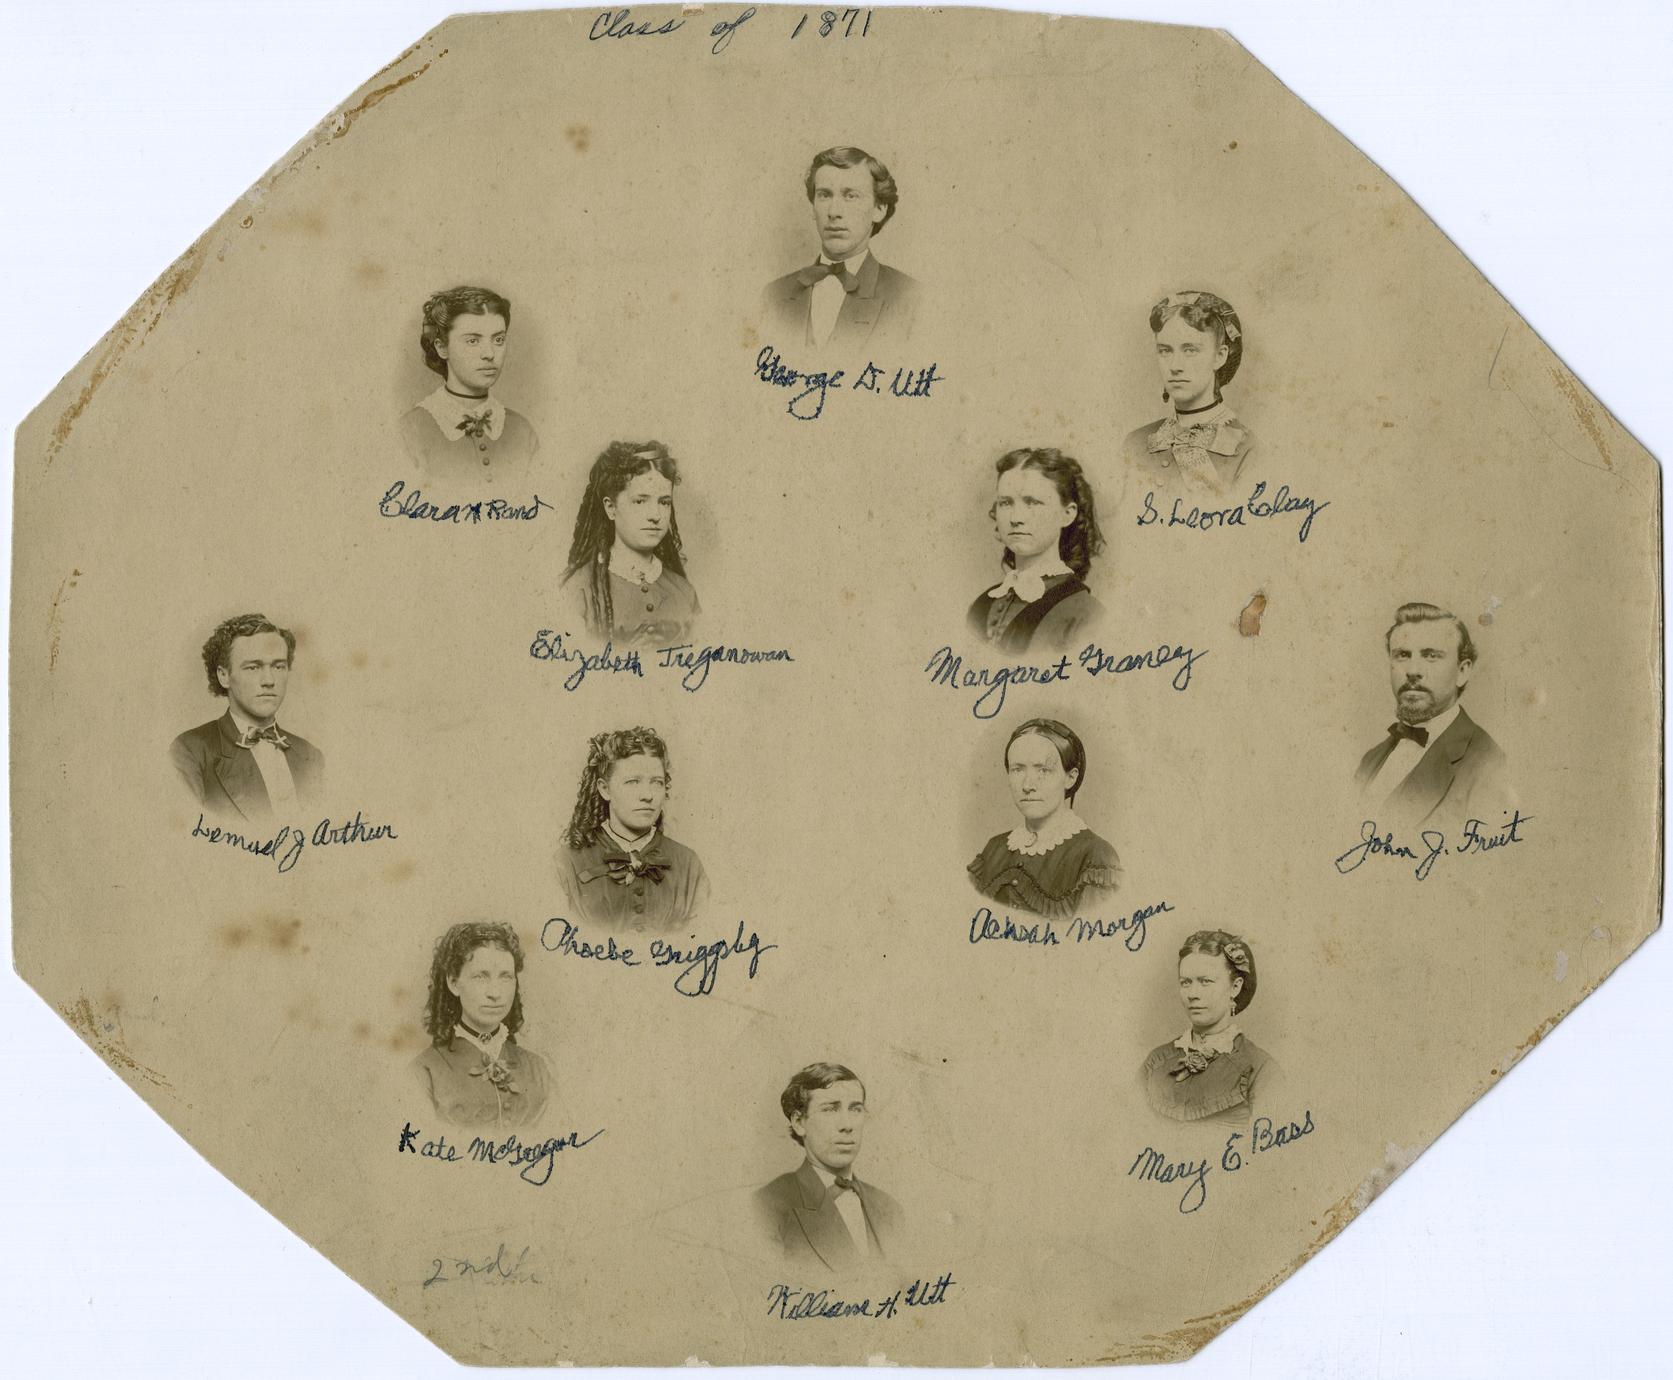 Class of 1871
George D. Utt
Clara N Rand
S. Leora Clay
Elizabeth Treganowan
Margaret Graney
Lemuel J Arthur
John J. Fruit
Phoebe Griggsby
Morgan
Kate McGregor
Mary E. Bass
William H. Utt
2nd